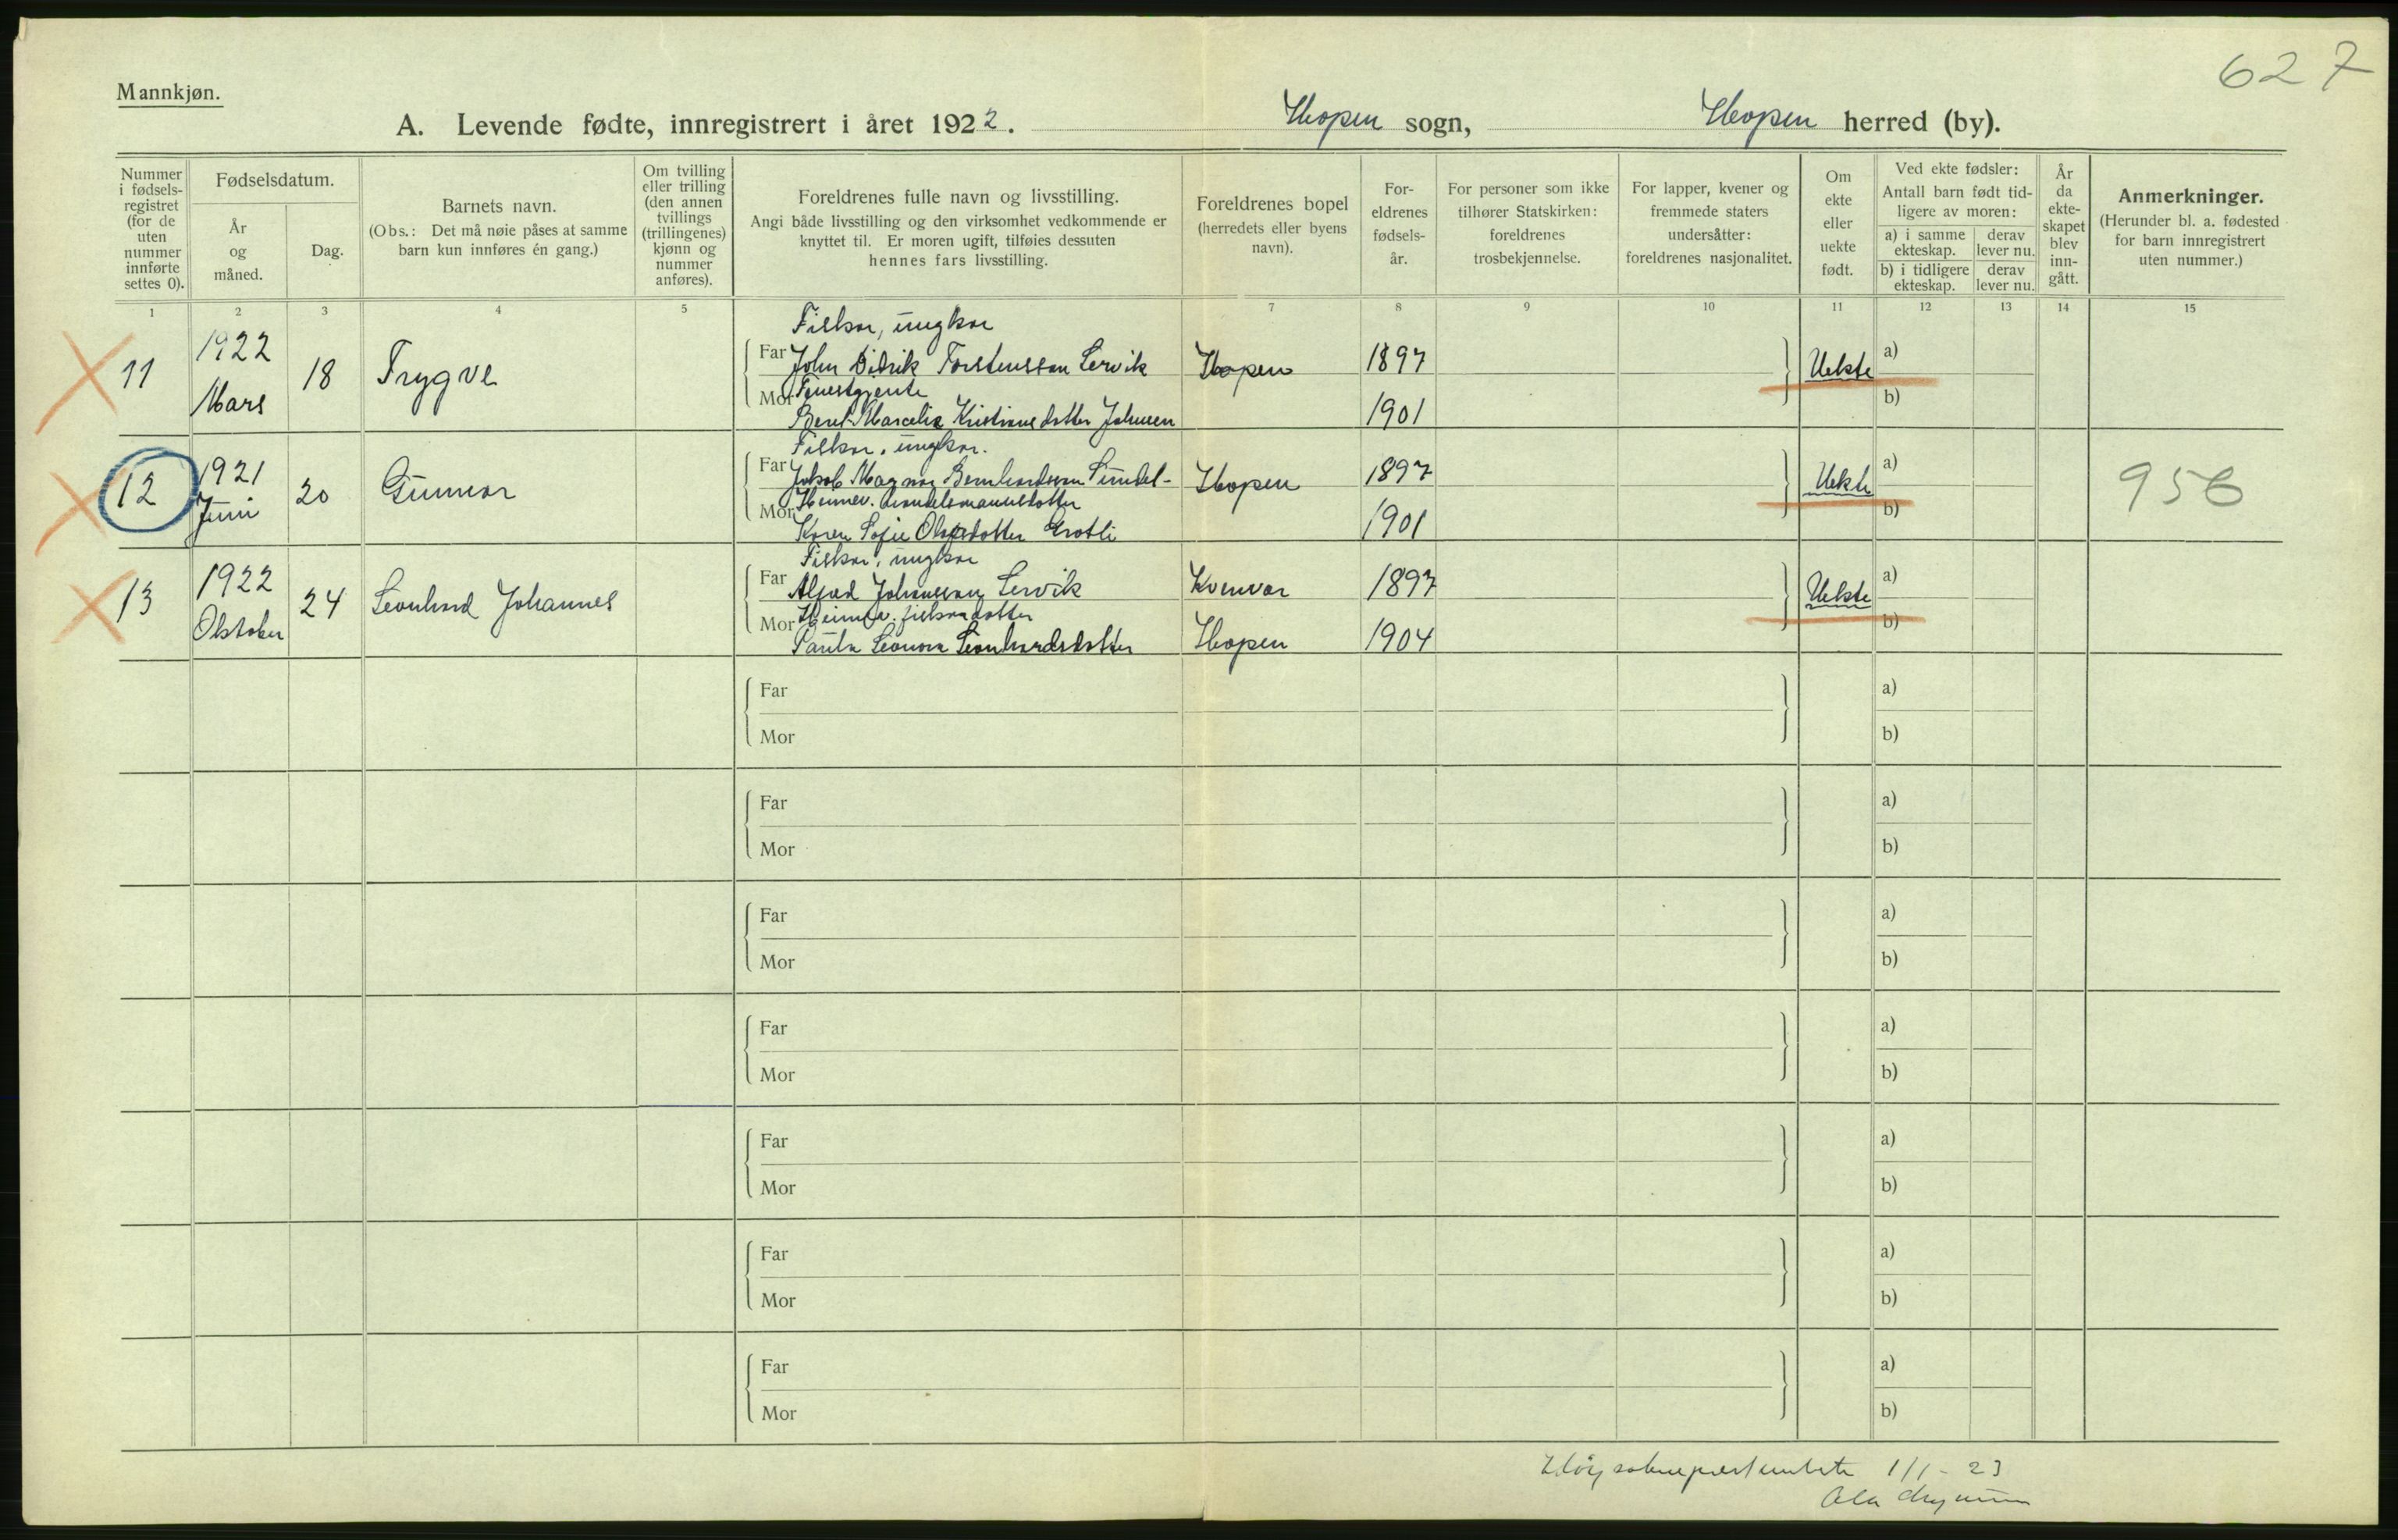 627
Mannkjøn.
A. Levende fødte, innregistrert i året 1922. Hopen sogn, Hopen herred (by).
Nummer i fødselsregistret (for de uten nummer innførte settes 0).
Fødselsdatum.
År og måned.
Dag.
Barnets navn.
(Obs.: Det må nøie påses at samme barn kun innføres én gang.)
Om tvilling eller trilling (den annen tvillings (trillingenes) kjønn og nummer anføres).
Foreldrenes fulle navn og livsstilling.
Angi både livsstilling og den virksomhet vedkommende er knyttet til. Er moren ugift, tilføies dessuten hennes fars livsstilling.
Foreldrenes bopel (herredets eller byens navn).
Foreldrenes fødselsår.
For personer som ikke tilhører Statskirken: foreldrenes trosbekjennelse.
For lapper, kvener og fremmede staters undersåtter: foreldrenes nasjonalitet.
Om ekte eller uekte født.
Ved ekte fødsler:
Antall barn født tidligere av moren:
a) i samme ekteskap.
derav lever nu.
b) i tidligere ekteskap.
derav lever nu.
År da ekteskapet blev inngått.
Anmerkninger.
(Herunder bl. a. fødested for barn innregistrert uten nummer.)
1 2 3 4 5 7 8 9 10 11 12 13 14 15
Fiskar, ungkar
11 1922 Mars 18 Trygve
Far John Didrik Torstensson Lervik Hopen 1897 Uekte a)
Tenestgjente
Mor Beret Marcelia Kristiansdotter Johnsen 1901 b)
Fiskar, ungkar.
12 1921 Juni 20 Gunnar
Far Jakob Magnar Bernhardsson Hopen 1897 Uekte a) 956
Heimev.
Mor Karen Sofie Olafsdotter 1901 b)
Fiskar, ungkar
13 1922 Oktober 24 Leonhard Johannes
Far Alfred Johansson Lervik Kvenvær 1897 Uekte a)
Heimev. fiskardotter
Mor Paula Leonora Leonhardsdotter Hopen 1904 b)
Far a)
Mor b)
Far a)
Mor b)
Far a)
Mor b)
Far a)
Mor b)
Far a)
Mor b)
Far a)
Mor b)
Far a)
Mor b)
1/1-23